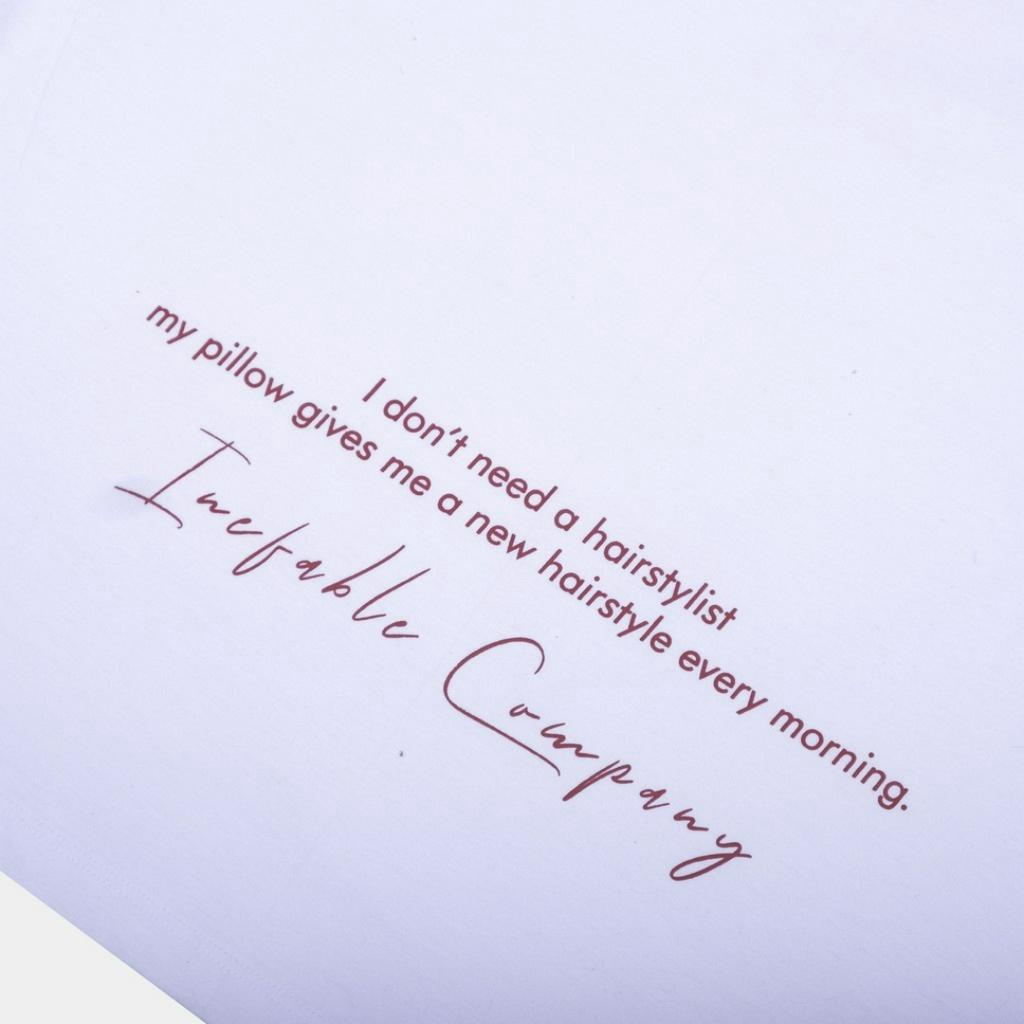 I don't need a hairstylist
my pillow gives me a new hairstyle every morning.
Inefable Company